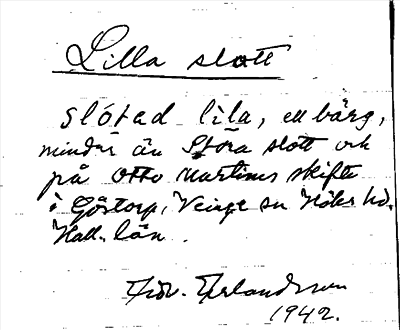 Lilla slott
slótad lila, ett bärg,
mindre än Stora slott och
på Otto Martins skifte
i Göstorp, Veinge sn Höks hd.
Hall. län.
Erlandsson
1942.